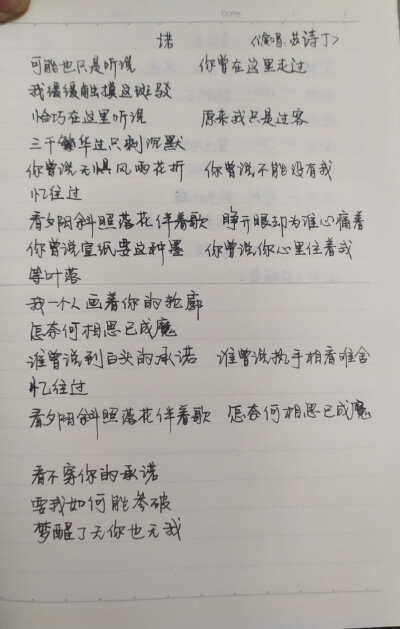 Date:
诺 《演唱:苏诗丁》
可能也只是听说 你曾在这里走过
我缓缓触摸这斑驳
恰巧在这里听说 原来我只是过客
三千繁华过只剩沉默
你曾说无惧风雨花折 你曾说不能没有我
忆往过
看夕阳斜照落花伴着歌 睁开眼却为谁心痛着
你曾说宣纸要这种墨 你曾说你心里住着我
等叶落
我一个人画着你的轮廓
怎奈何相思已成魔
谁曾说到白头的承诺 谁曾说执手相看难舍
忆往过
看夕阳斜照落花伴着歌 怎奈何相思已成魔
看不穿你的承诺
要我如何能参破
梦醒了无你也无我